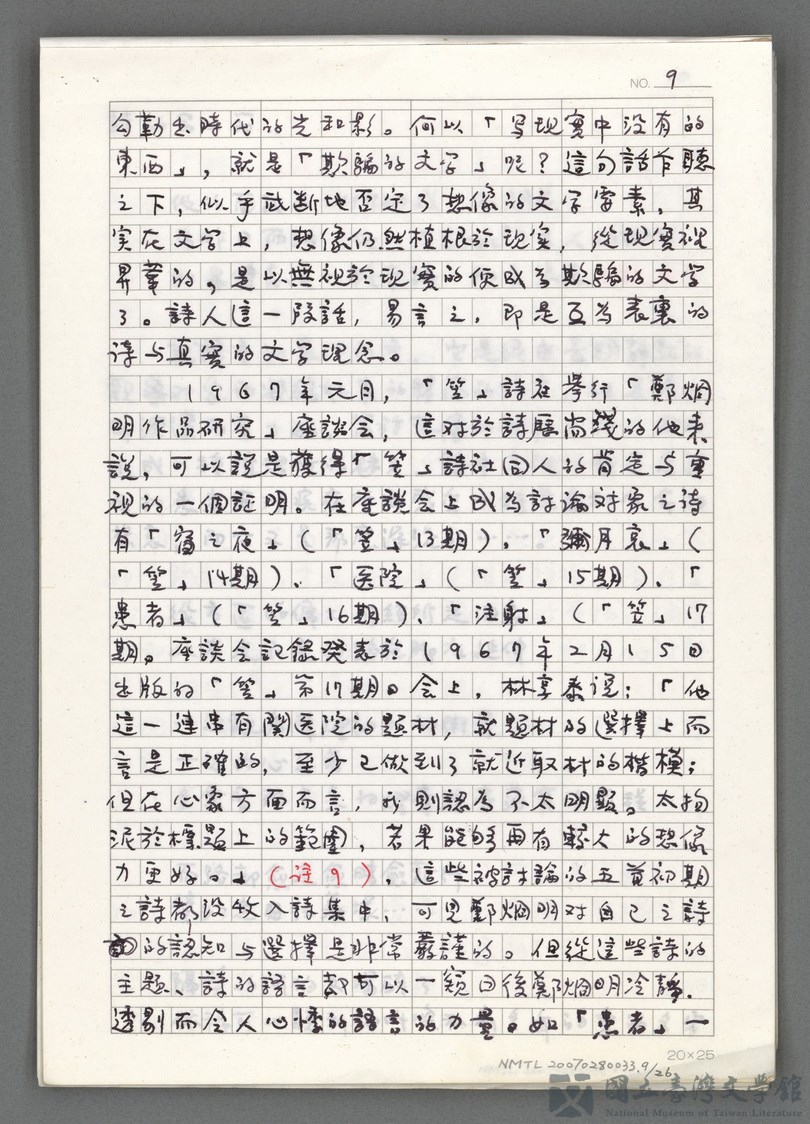 NO. 9
勾勒出時代的光和影。何以「写現實中没有的
東西」,就是「欺騙的文学」呢?這句話乍聽
之下,似乎武断地否定了想像的文学要素,其
实在文学上,想像仍然植根於现实,從现實裡
昇華的,是以無視於现實的便成為欺騙的文学
了。詩人這一段話,易言之,即是互為表裏的
詩与真實的文学理念。
1967年元月,「笠」詩社举行「鄭烱
明作品研究」座談会,這对於詩歷尚淺的他来
說,可以說是獲得「笠」詩社同人的肯定与重
視的一個証明。在座談会上成為討論对象之詩
有「宿之夜」(「笠」13期)、「彌月哀」(
「笠」14期)、「医院」(「笠」15期)、「
患者」(「笠」16期)、「注射」(「笠」17
期。座談会記錄発表於1967年2月15日
出版的「笠」第17期。会上,林亨泰说:「他
這一連串有関医院的題材,就題材的選擇上而
言是正確的,至少已做到了就近取材的楷模;
但在心象方面而言,我則認為不太明顯。太拘
泥於標題上的範圍,若果能够再有較大的想像
力更好。」(註9)。這些被討論的五首初期
之詩都没收入詩集中,可見鄭烱明对自己之詩
的認知与選擇是非常嚴謹的。但從這些詩的
主題、詩的語言都可以一窺日後鄭烱明冷靜、
透剔而令人心悸的語言的力量。如「患者」一
20×25
NMTL 20070280033.9/26
國立臺灣文學館
National Museum of Taiwan Literature